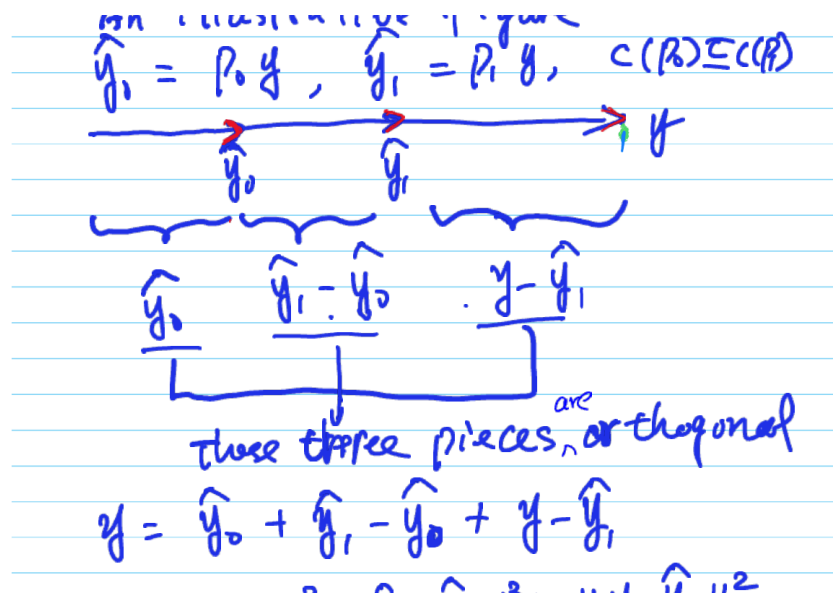 An illustrative figure
ŷ₀ = P₀ y, ŷ₁ = P₁ y, C(P₀) ⊆ C(P₁)
y
ŷ₀ ŷ₁
ŷ₀ ŷ₁ - ŷ₀ y - ŷ₁
those three pieces are orthogonal
y = ŷ₀ + ŷ₁ - ŷ₀ + y - ŷ₁